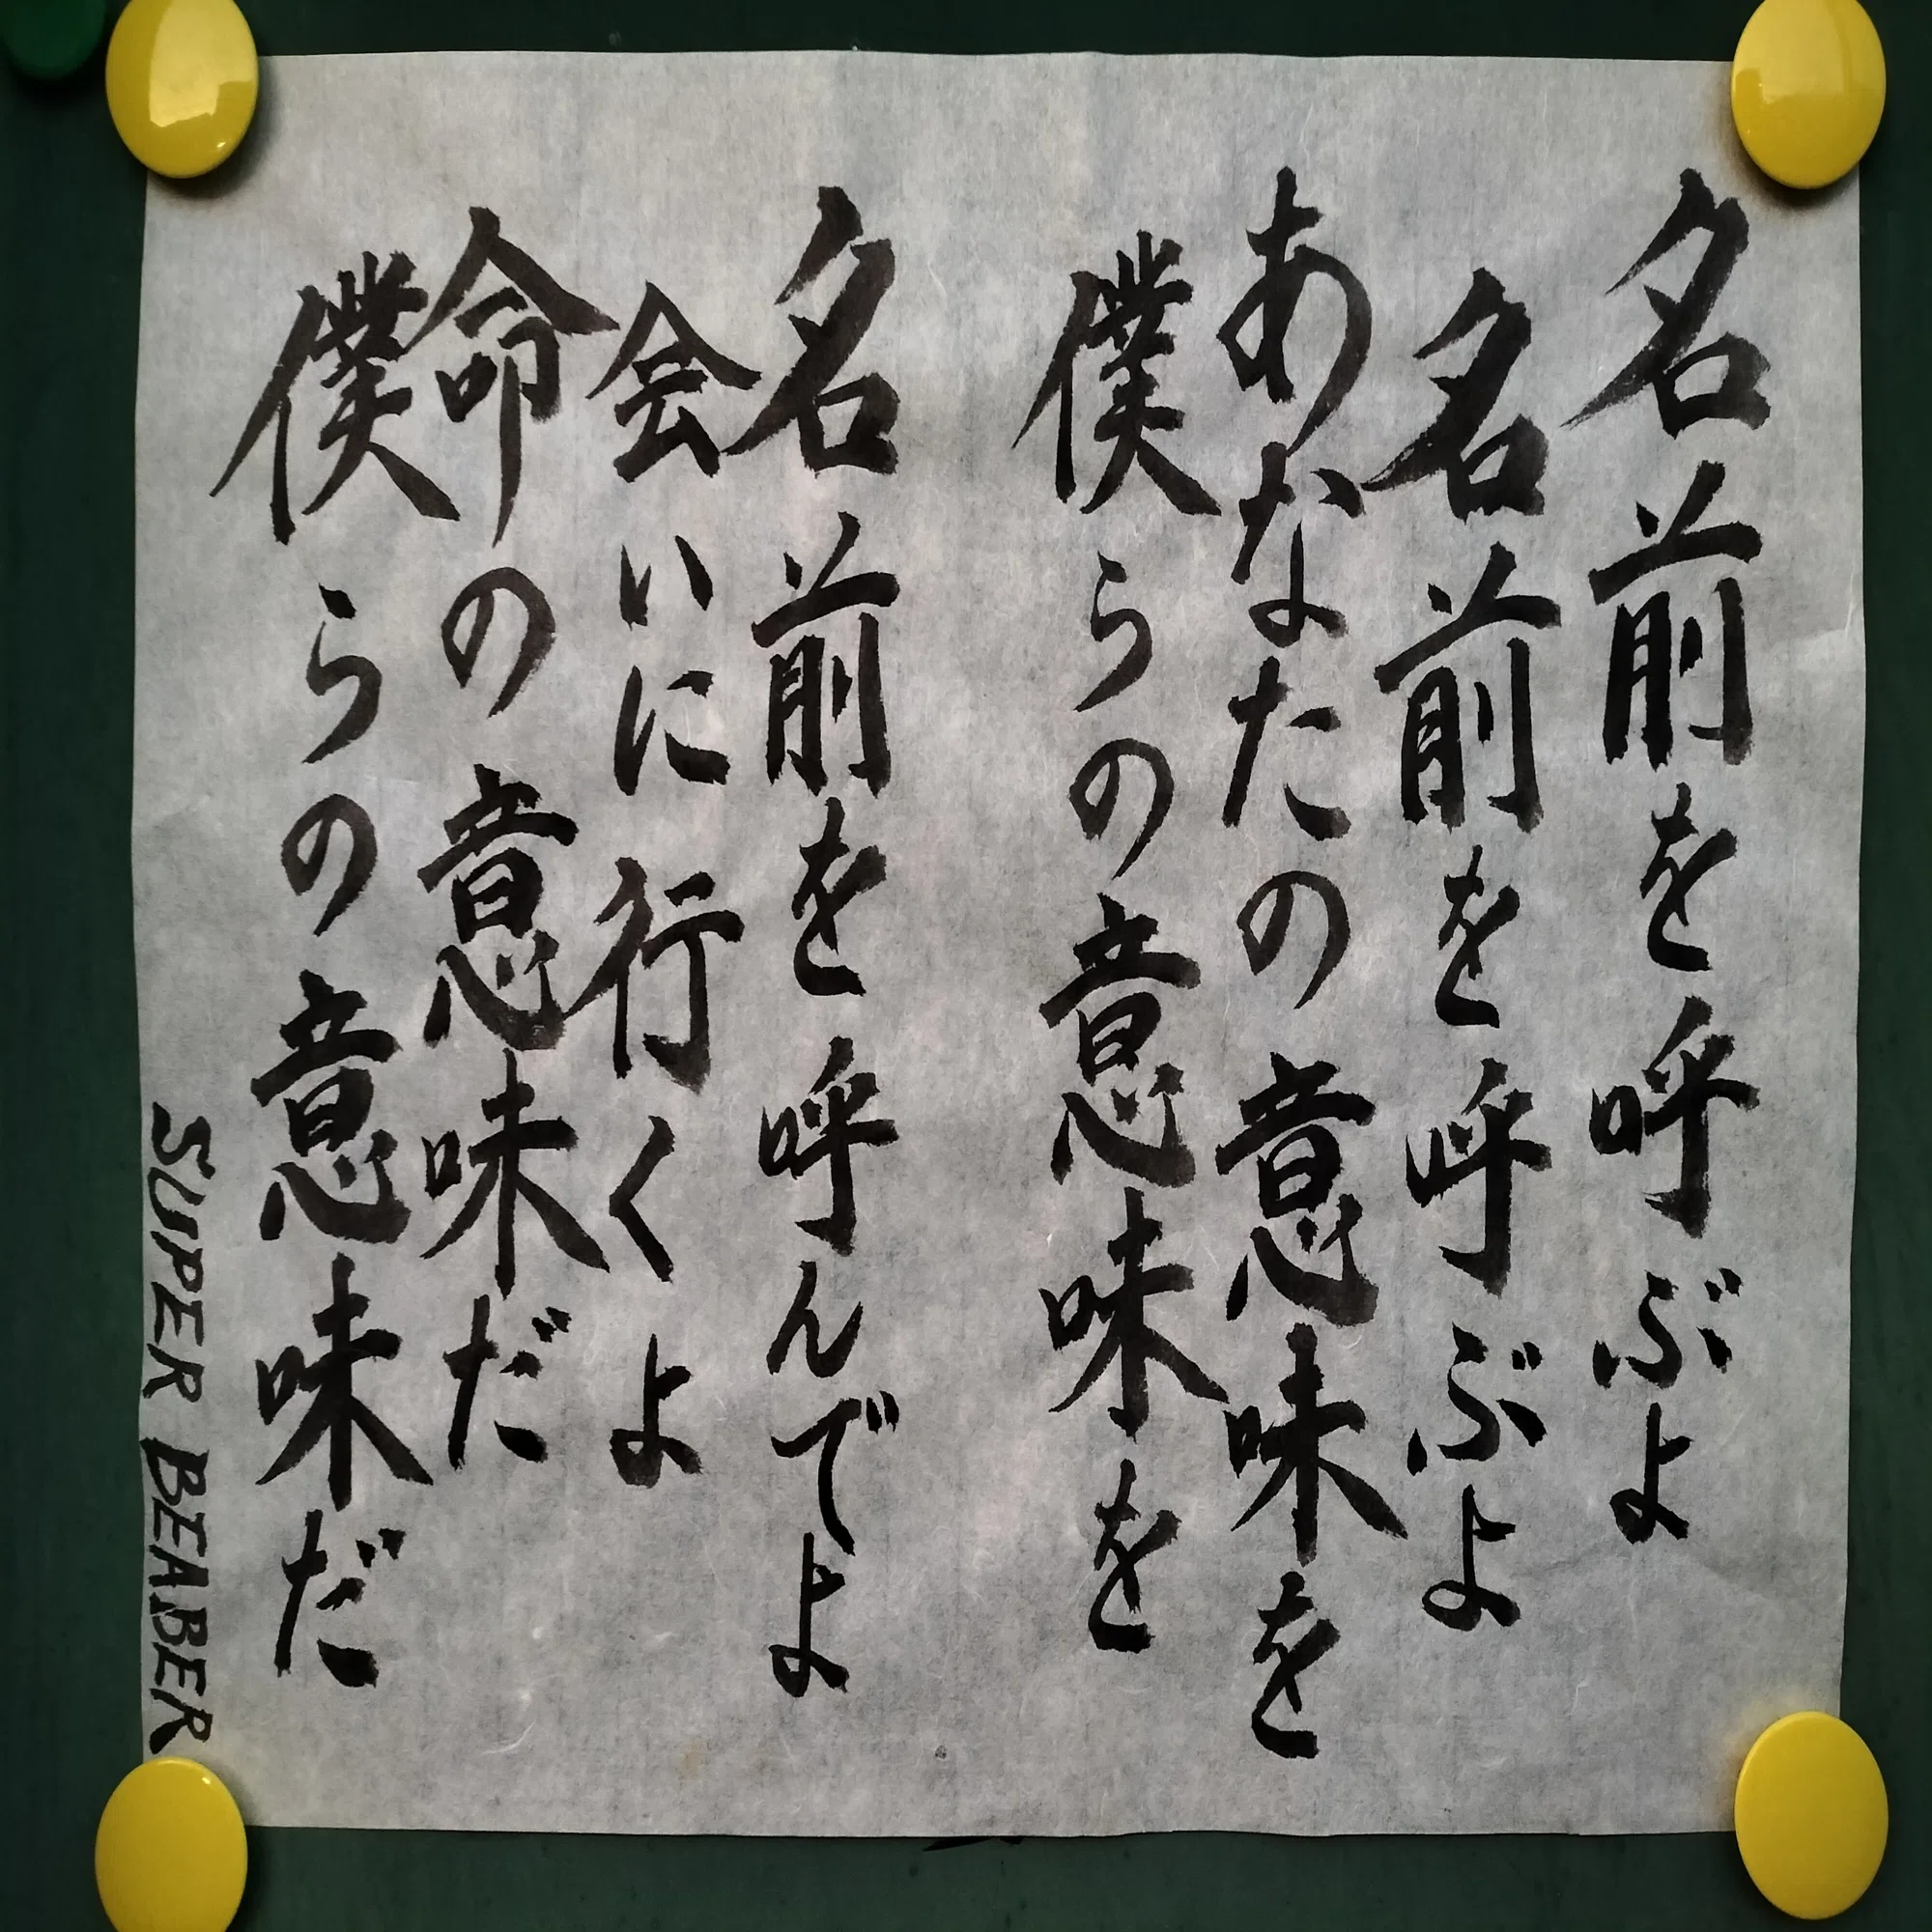 名前を呼ぶよ
名前を呼ぶよ
あなたの意味を
僕らの意味を
名前を呼んでよ
会いに行くよ
命の意味だ
僕らの意味だ
SUPER BEABER